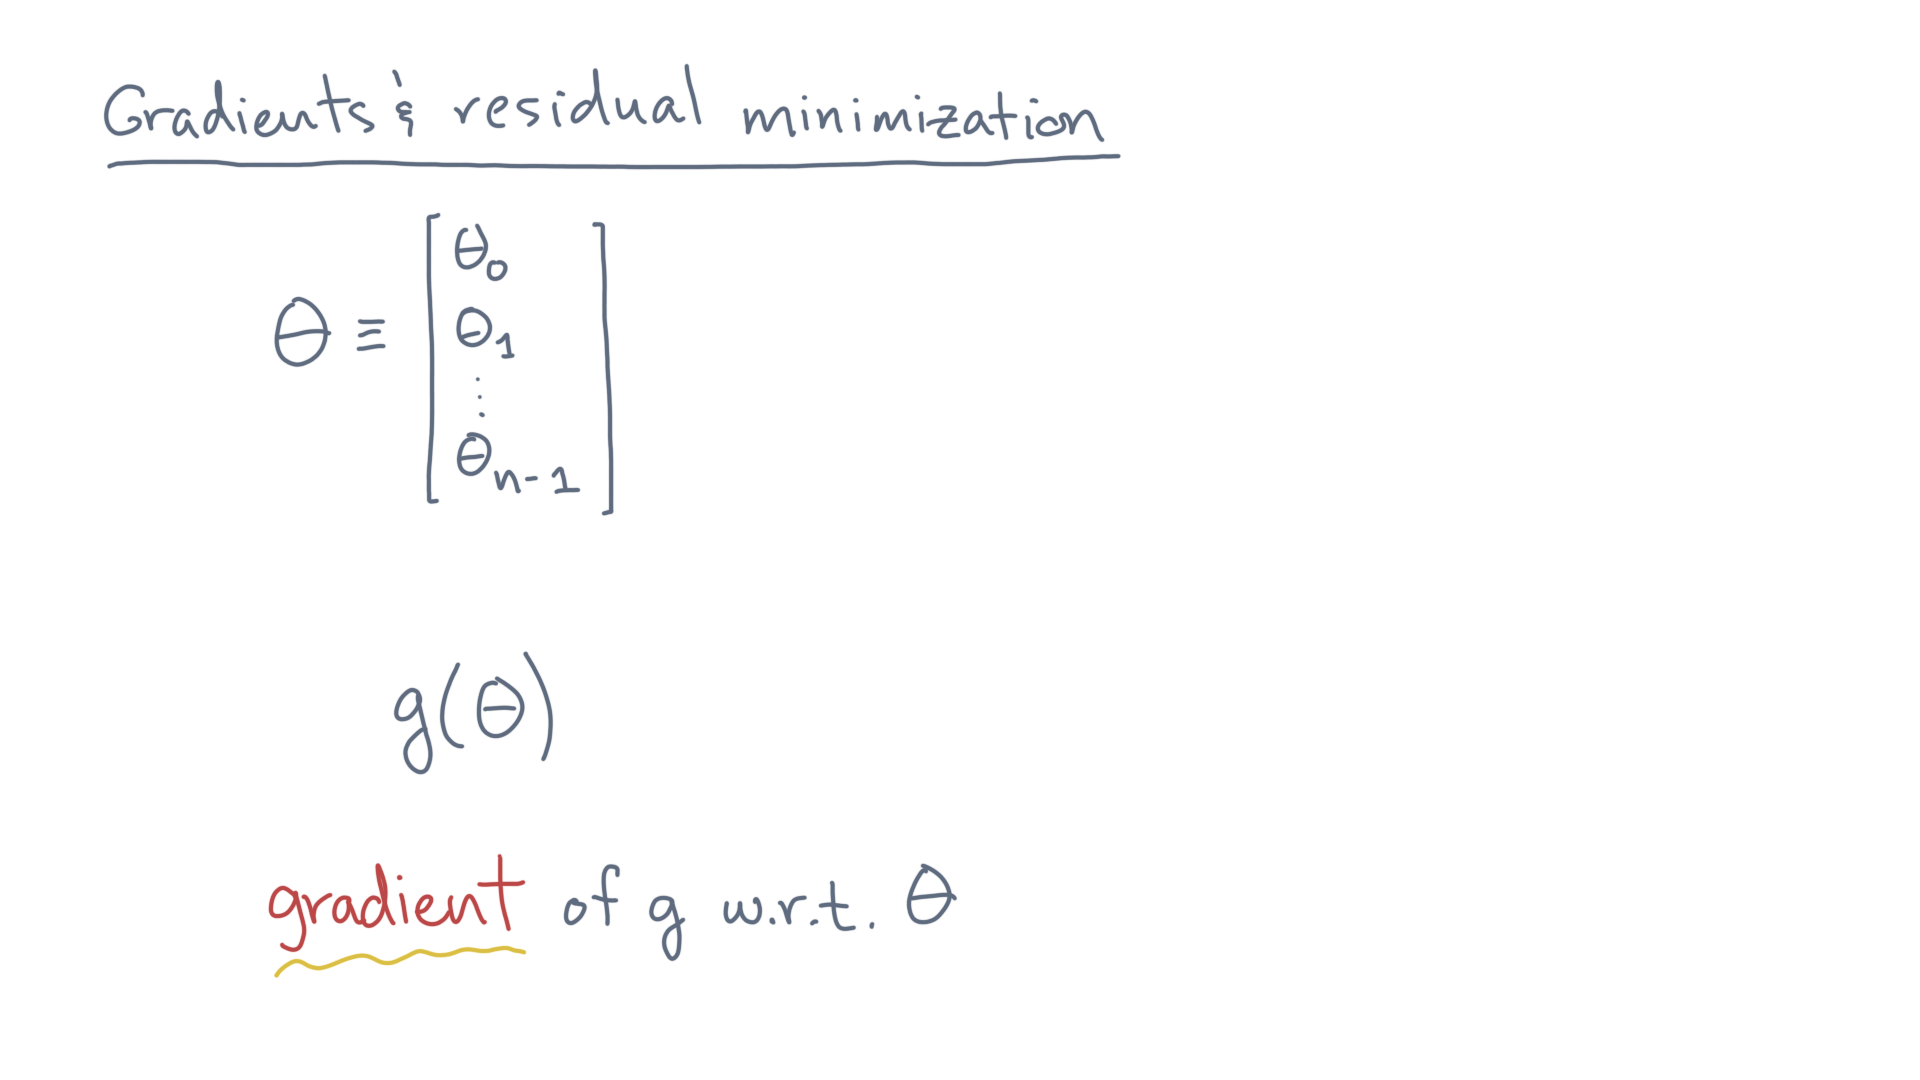 Gradients & residual minimization
θ ≡ [ θ₀
θ₁
⋮
θₙ₋₁ ]
g(θ)
gradient of g w.r.t. θ